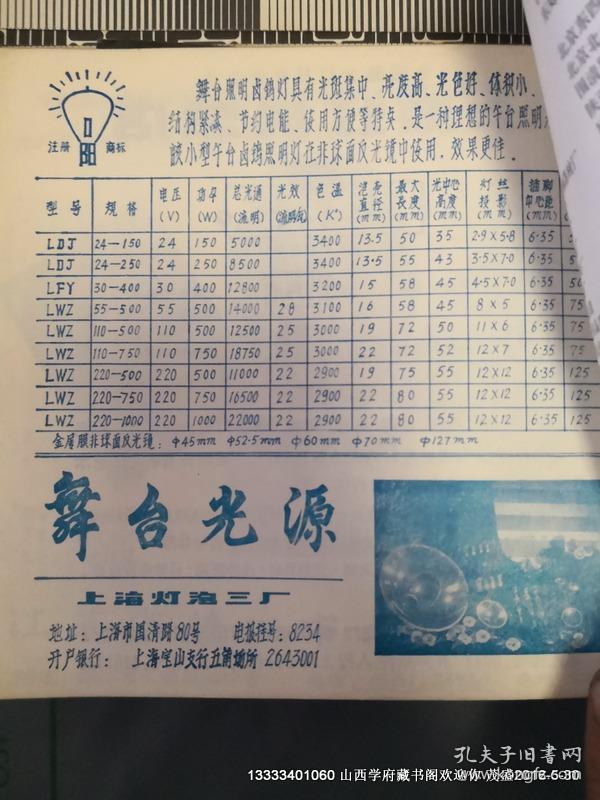 舞台照明卤钨灯具有光斑集中、亮度高、光色好、体积小、
结构紧凑、节约电能、使用方便等特点。是一种理想的午台照明
该小型午台卤钨照明灯在非球面反光镜中使用，效果更佳。
注册 日阳 商标
型号 规格 电压(V) 功率(W) 总光通(流明) 光效(流明/瓦) 色温(K°) 泡壳直径(mm) 最大长度(mm) 光中心高度(mm) 灯丝投影(mm) 插脚中心距(mm)
LDJ 24-150 24 150 5000 3400 13.5 50 35 2.9×5.8 6.35
LDJ 24-250 24 250 8500 3400 13.5 55 43 3.5×7.0 6.35
LFY 30-400 30 400 12800 3200 15 58 45 4.5×7.0 6.35
LWZ 55-500 55 500 14000 28 3100 16 58 45 8×5 6.35 75
LWZ 110-500 110 500 12500 25 3000 19 72 50 11×6 6.35 75
LWZ 110-750 110 750 18750 25 3000 22 72 52 12×7 6.35 75
LWZ 220-500 220 500 11000 22 2900 19 75 55 12×12 6.35 125
LWZ 220-750 220 750 16500 22 2900 22 80 55 12×12 6.35 125
LWZ 220-1000 220 1000 22000 22 2900 22 80 55 12×12 6.35 125
金属膜非球面反光镜： φ45mm φ52.5mm φ60mm φ70mm φ127mm
舞台光源
上海灯泡三厂
地址：上海市国清路80号 电报挂号：8234
开户银行： 上海宝山支行五角场所 2643001
北京
北京北
孔夫子旧书网
13333401060 山西学府藏书阁欢迎你 茂盛2018-5-30